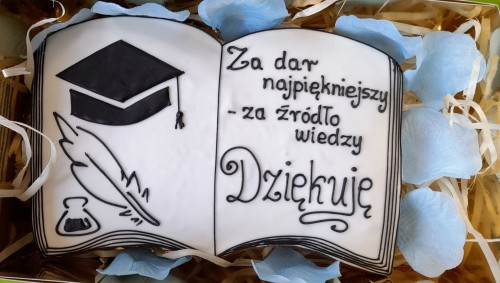 Za dar
najpiękniejszy
- za źródło
wiedzy
Dziękuję